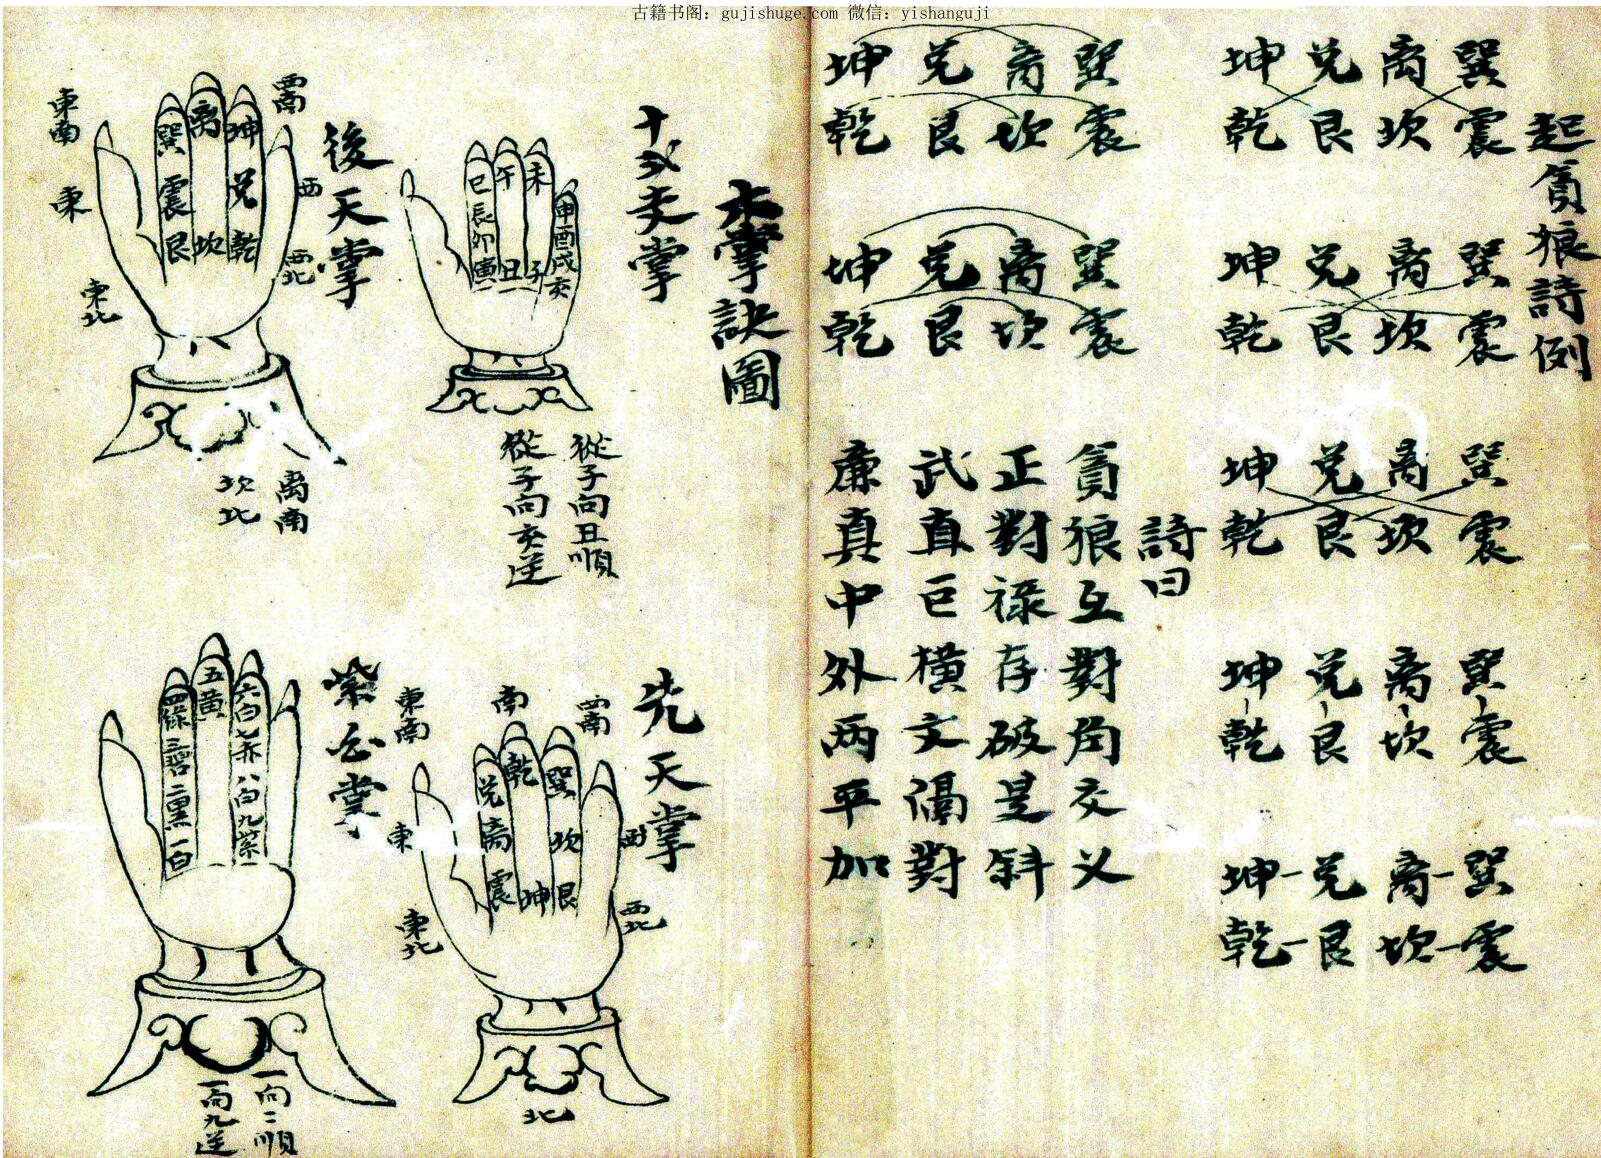 古籍书阁：gujishuge.com 微信：yishanguji
起貪狼詩例
巽離兌坤
震坎艮乾
巽離兌坤
震坎艮乾
巽離兌坤
震坎艮乾
巽離兌坤
震坎艮乾
巽離兌坤
震坎艮乾
巽離兌坤
震坎艮乾
巽離兌坤
震坎艮乾
詩曰
貪狼互對角交义
正對祿存破是斜
武直巨横文隔對
廉真中外两平加
掌訣圖
十弍支掌
未
午
巳
辰
卯
寅
丑
子
申
酉
戌
亥
從子向丑順
從子向亥逆
後天掌
西南
坤
離
巽
東南
兌
震
西
東
乾
坎
艮
西北
東北
離南
坎北
先天掌
西南
南
東南
巽
乾
兌
坎
離
西
東
艮
坤
震
西北
東北
北
紫公掌
六白七赤八白九紫
五黃
四綠三碧二黑一白
一向二順
一向九逆